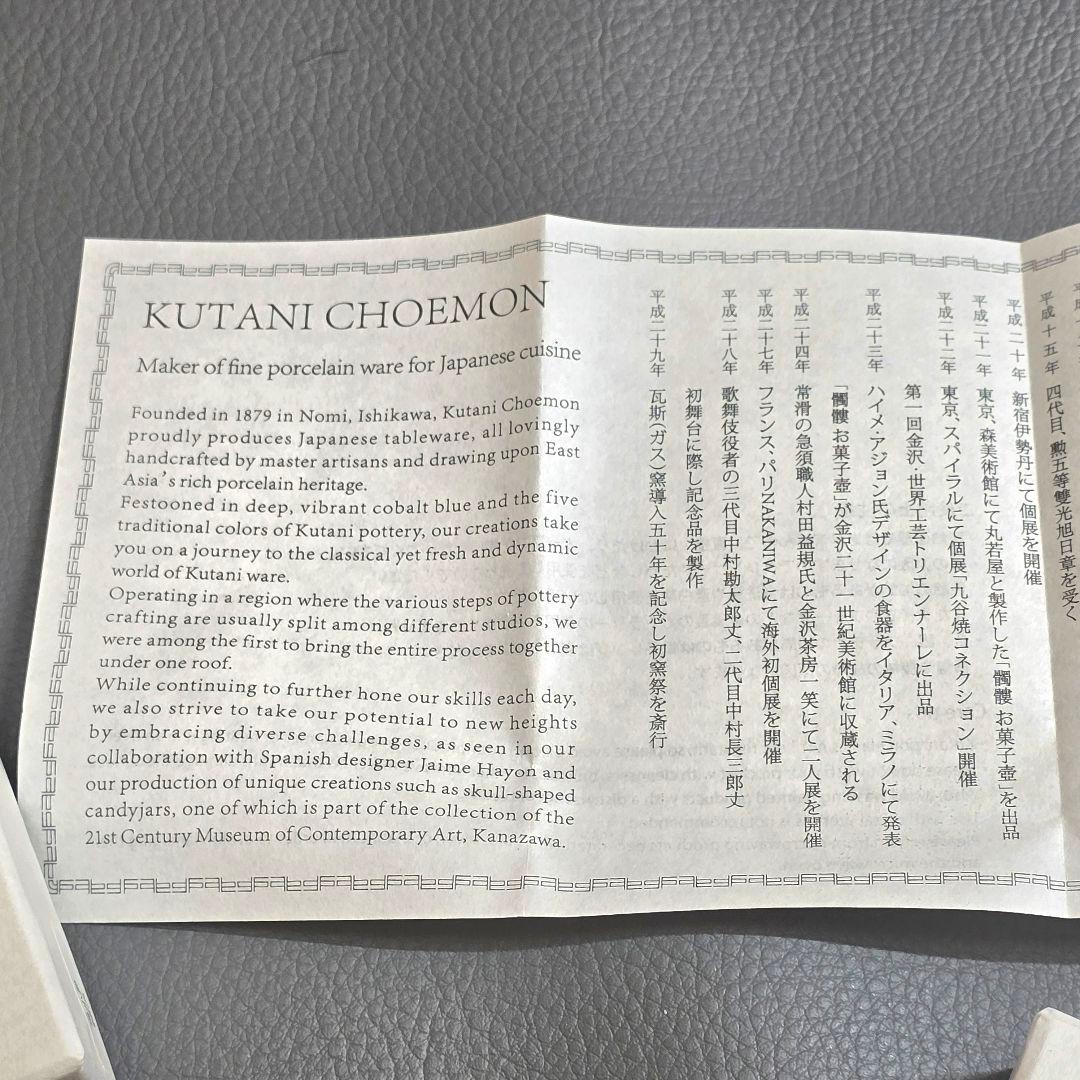 KUTANI CHOEMON
Maker of fine porcelain ware for Japanese cuisine
Founded in 1879 in Nomi, Ishikawa, Kutani Choemon
proudly produces Japanese tableware, all lovingly
handcrafted by master artisans and drawing upon East
Asia's rich porcelain heritage.
Festooned in deep, vibrant cobalt blue and the five
traditional colors of Kutani pottery, our creations take
you on a journey to the classical yet fresh and dynamic
world of Kutani ware.
Operating in a region where the various steps of pottery
crafting are usually split among different studios, we
were among the first to bring the entire process together
under one roof.
While continuing to further hone our skills each day,
we also strive to take our potential to new heights
by embracing diverse challenges, as seen in our
collaboration with Spanish designer Jaime Hayon and
our production of unique creations such as skull-shaped
candyjars, one of which is part of the collection of the
21st Century Museum of Contemporary Art, Kanazawa.
平成十五年 四代目、勲五等雙光旭日章を受く
平成二十年 新宿伊勢丹にて個展を開催
平成二十一年 東京、森美術館にて丸若屋と製作した「髑髏 お菓子壺」を出品
平成二十二年 東京、スパイラルにて個展「九谷焼コネクション」開催
第一回金沢・世界工芸トリエンナーレに出品
平成二十三年 ハイメ・アジョン氏デザインの食器をイタリア、ミラノにて発表
「髑髏 お菓子壺」が金沢二十一世紀美術館に収蔵される
平成二十四年 常滑の急須職人村田益規氏と金沢茶房一笑にて二人展を開催
平成二十七年 フランス、パリNAKANIWAにて海外初個展を開催
平成二十八年 歌舞伎役者の三代目中村勘太郎丈、二代目中村長三郎丈
初舞台に際し記念品を製作
平成二十九年 瓦斯(ガス)窯導入五十年を記念し初窯祭を斎行